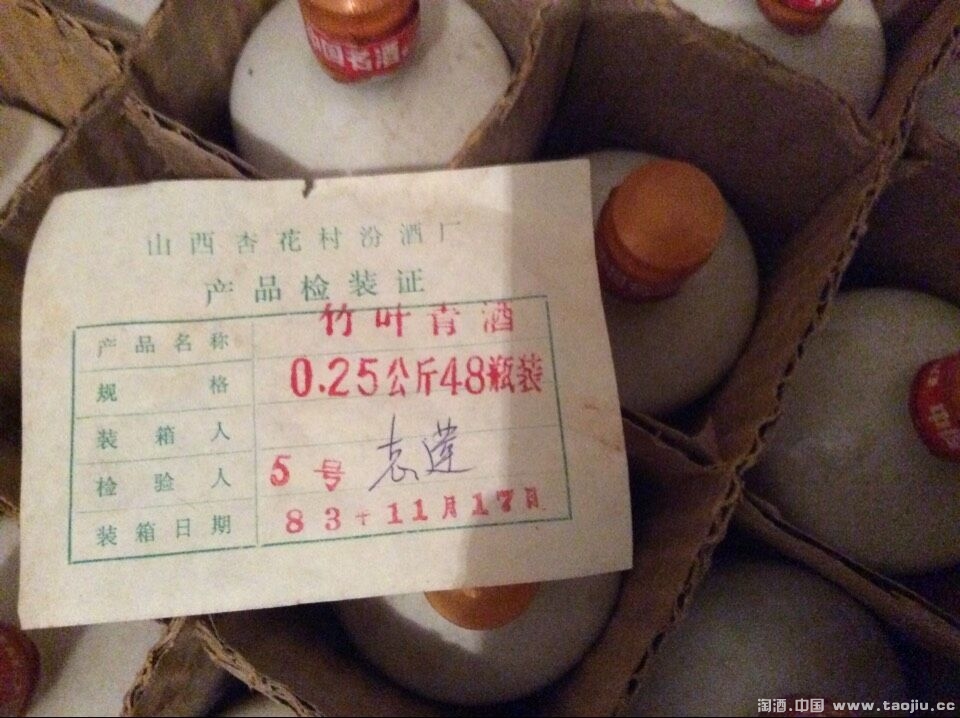 中国名酒
山西杏花村汾酒厂
产品检装证
产品名称 竹叶青酒
规格 0.25公斤48瓶装
装箱人
检验人 5号 志莲
装箱日期 83年11月17日
淘酒.中国 www.taojiu.cc